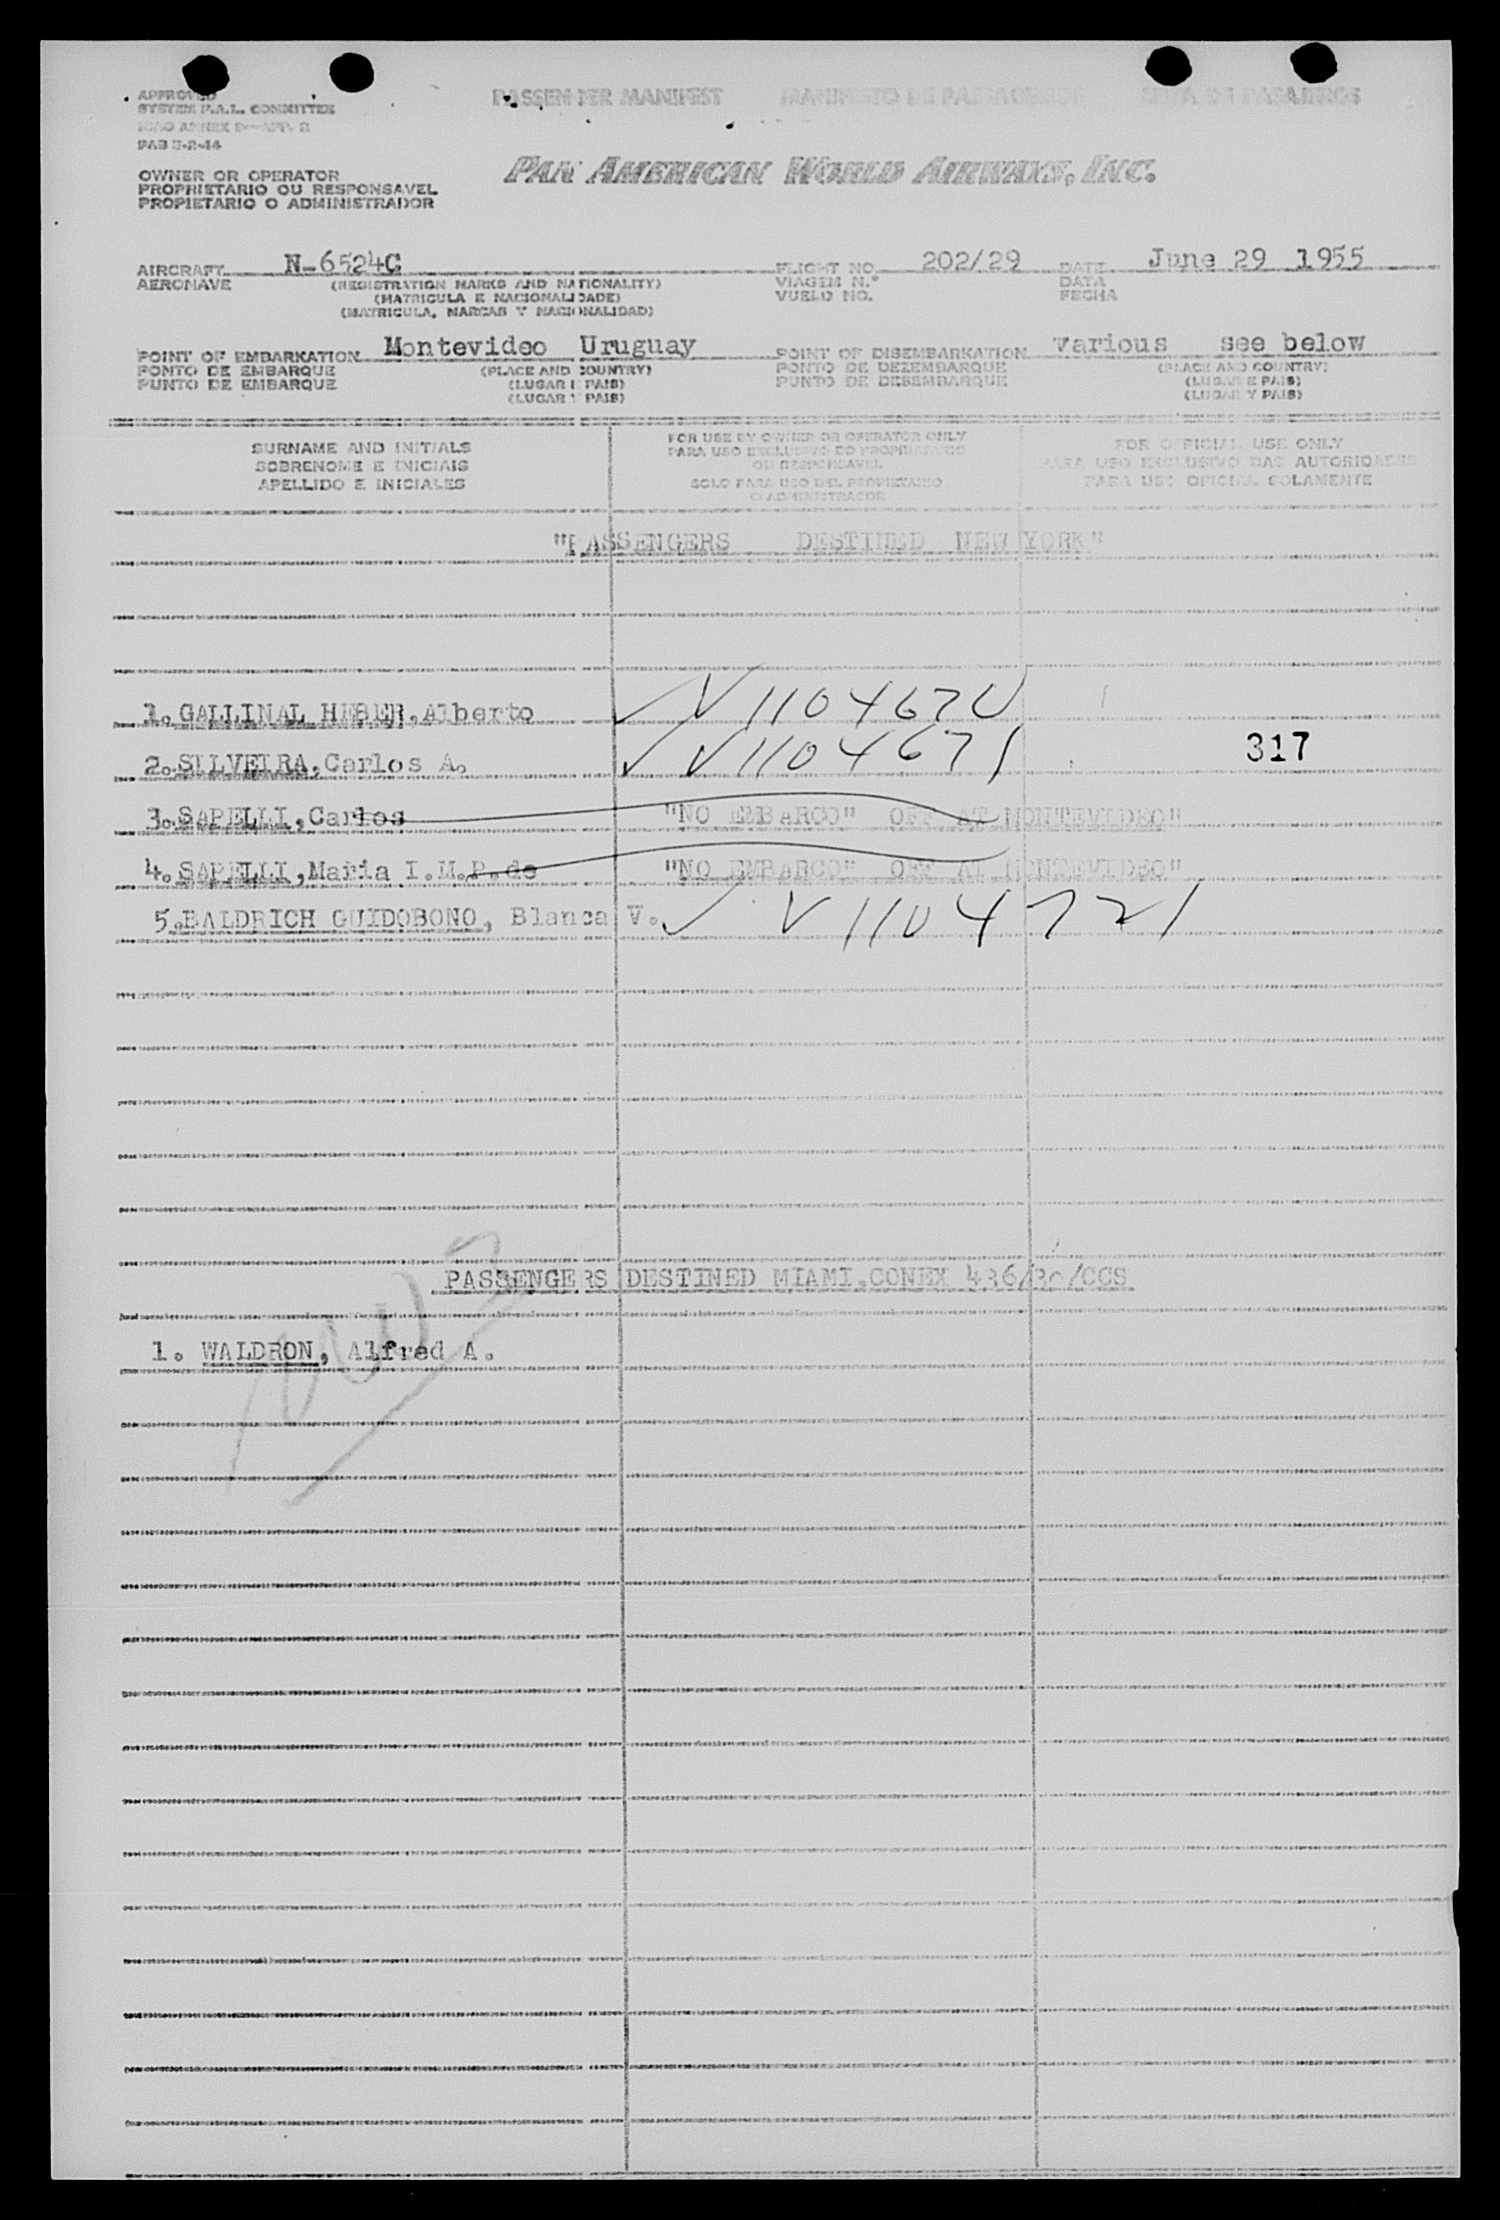 APPROVED
SYSTEM F.A.L. COMMITTEE
PASSENGER MANIFEST MANIFESTO DE PASSAGEIROS LISTA DE PASAJEROS
OWNER OR OPERATOR
PROPRIETARIO OU RESPONSAVEL
PROPIETARIO O ADMINISTRADOR
PAN AMERICAN WORLD AIRWAYS, INC.
AIRCRAFT N-6524C FLIGHT NO. 202/29 DATE June 29 1955
AERONAVE (REGISTRATION MARKS AND NATIONALITY) VIAGEM N.° DATA
(MATRICULA E NACIONALIDADE) VUELO NO. FECHA
(MATRICULA, MARCAS Y NACIONALIDAD)
POINT OF EMBARKATION Montevideo Uruguay POINT OF DISEMBARKATION various see below
PONTO DE EMBARQUE (PLACE AND COUNTRY) PONTO DE DEZEMBARQUE (PLACE AND COUNTRY)
PUNTO DE EMBARQUE (LUGAR E PAIS) PUNTO DE DESEMBARQUE (LUGAR E PAIS)
(LUGAR Y PAIS) (LUGAR Y PAIS)
SURNAME AND INITIALS
SOBRENOME E INICIAIS
APELLIDO E INICIALES
FOR USE BY OWNER OR OPERATOR ONLY
PARA USO EXCLUSIVO DO PROPRIETARIO
OU RESPONSAVEL
SOLO PARA USO DEL PROPIETARIO
O ADMINISTRADOR
FOR OFFICIAL USE ONLY
PARA USO EXCLUSIVO DAS AUTORIDADES
PARA USO OFICIAL SOLAMENTE
"PASSENGERS DESTINED NEW YORK"
1. GALLINAL HEBER, Alberto V 1104670
2. SILVEIRA, Carlos A. V 1104671 317
3. SAPELLI, Carlos "NO EMBARCO" OFF AT MONTEVIDEO"
4. SAPELLI, Maria I. M. P. de "NO EMBARCO" OFF AT MONTEVIDEO"
5. BALDRICH GUIDOBONO, Blanca V. V 1104721
PASSENGERS DESTINED MIAMI, CONEX 436/30/CCS
1. WALDRON, Alfred A.